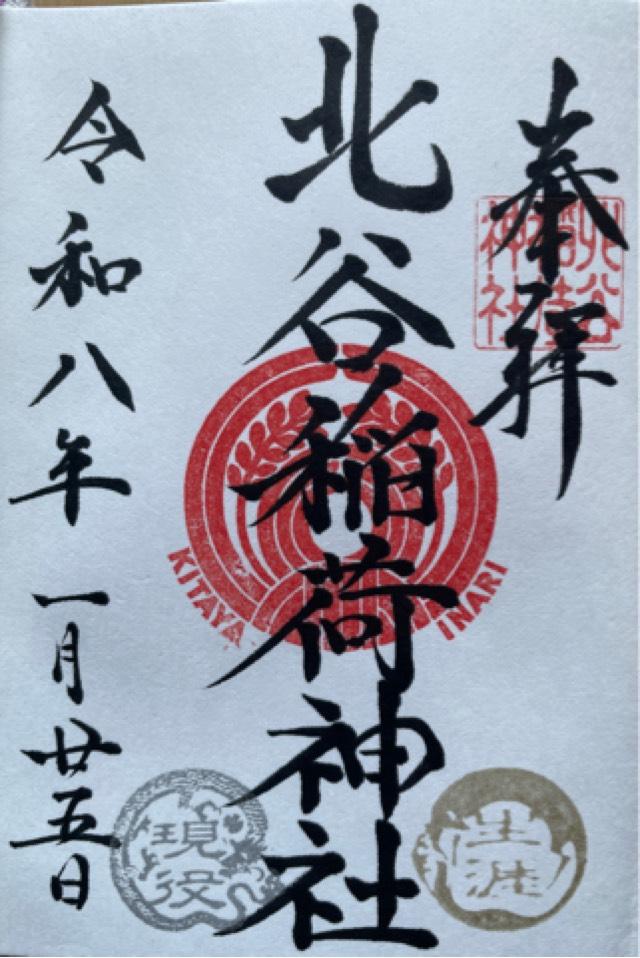 奉拝
北谷稲荷神社
北谷稲荷神社
KITAYA INARI
生涯
現役
令和八年 一月廿五日